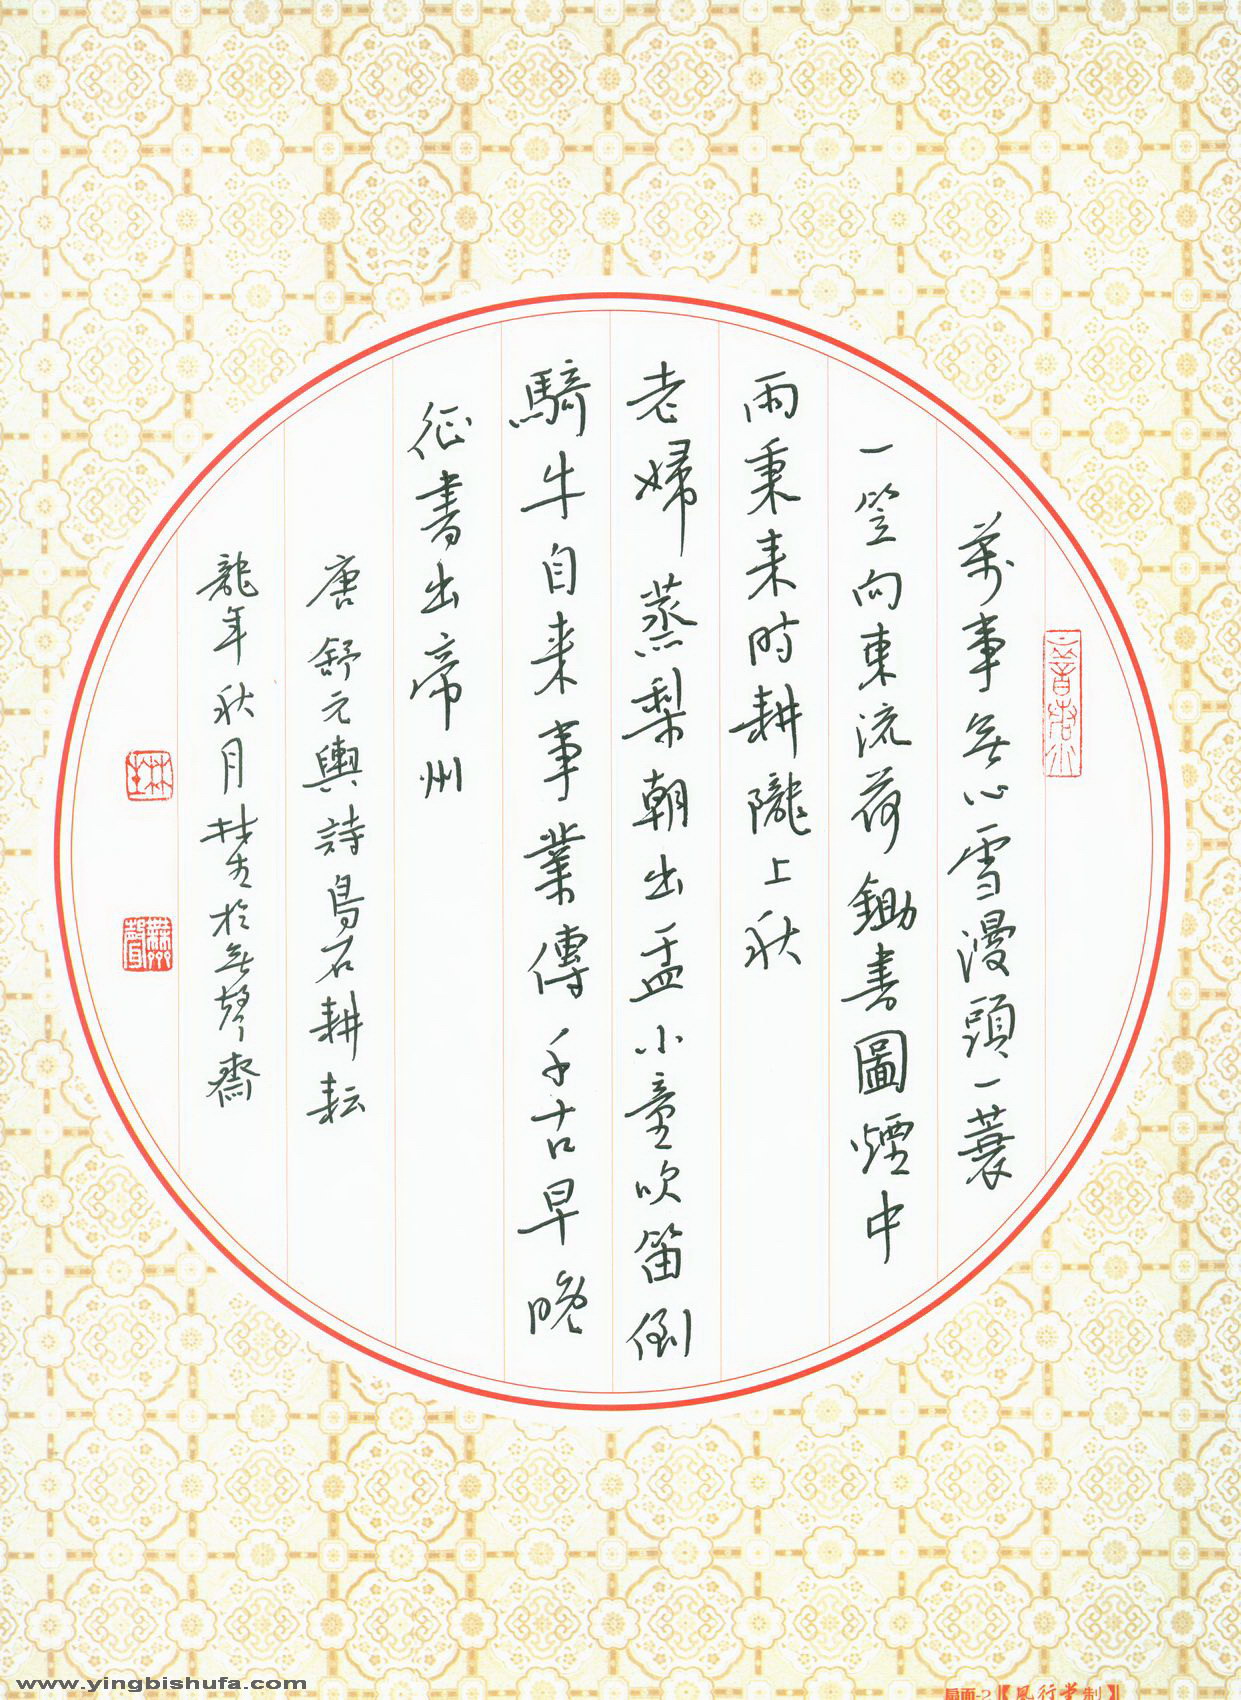 萬事無心雪漫頭一蓑
一笠向東流荷鋤書圖煙中
雨秉耒時耕隴上秋
老婦蒸梨朝出盂小童吹笛倒
騎牛自来事業傳千古早晚
征書出帝州
唐舒元輿詩鳥石耕耘
龍年秋月於無聲齋
無聲
www.yingbishufa.com
扇面-2【風行堂制】